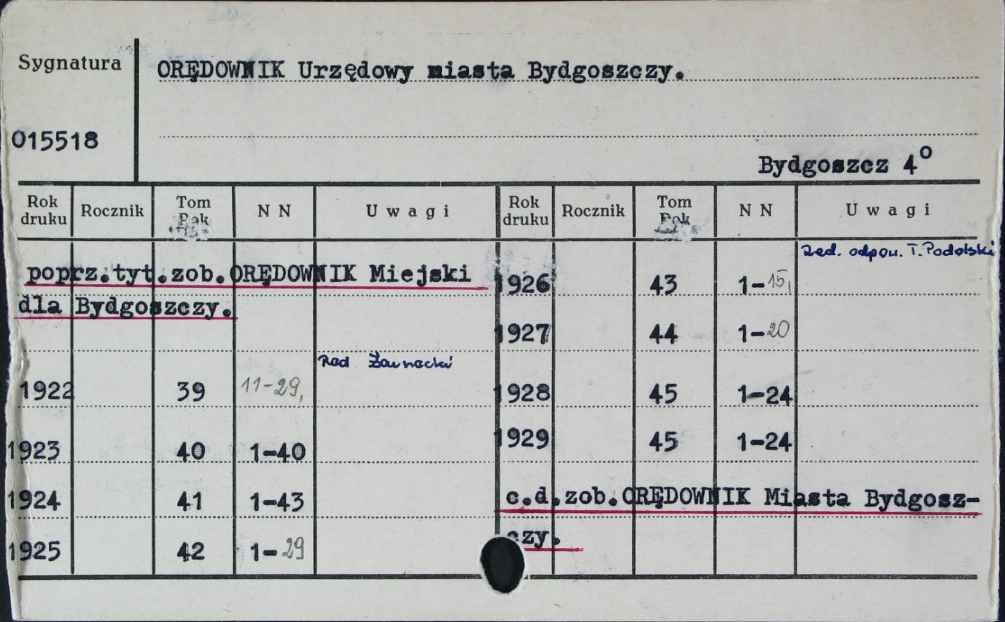 Sygnatura
ORĘDOWNIK Urzędowy miasta Bydgoszczy.
015518
Bydgoszcz 4⁰
Rok druku Rocznik Tom Rok N N Uwagi Rok druku Rocznik Tom Rok N N Uwagi
poprz.tyt.zob.ORĘDOWNIK Miejski
dla Bydgoszczy.
Red
1922 39 11-29,
1923 40 1-40
1924 41 1-43
1925 42 1-29
red. odpow. T. Podolski
1926 43 1-15,
1927 44 1-20
1928 45 1-24
1929 45 1-24
c.d.zob.ORĘDOWNIK Miasta Bydgosz-
czy.